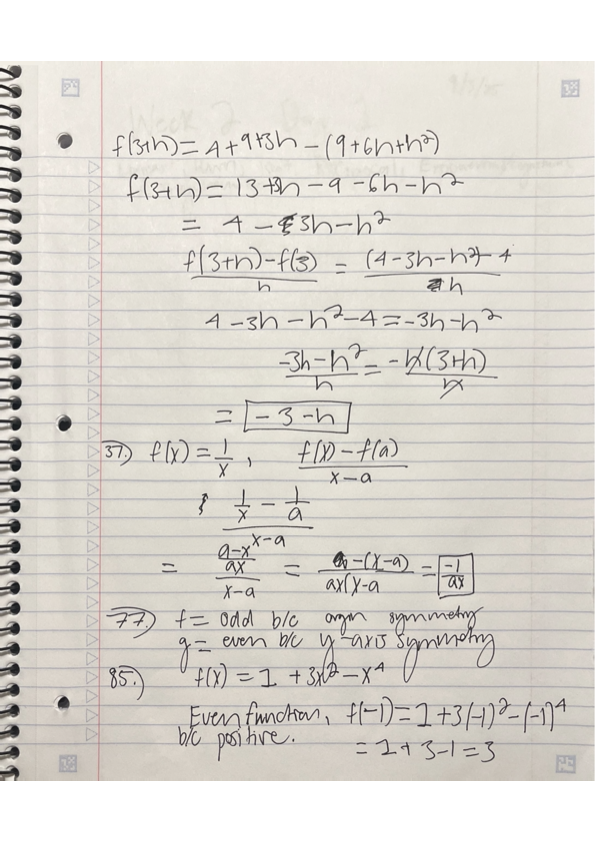 f(3+h) = 4 + 9+3h - (9+6h+h²)
f(3+h) = 13+3h - 9 - 6h - h²
= 4 - 3h - h²
f(3+h) - f(3) / h = (4 - 3h - h²) - 4 / h
4 - 3h - h² - 4 = -3h - h²
-3h - h² / h = -h(3+h) / h
= -3 - h
37.) f(x) = 1/x , f(x) - f(a) / x - a
1/x - 1/a / x-a
= a-x / ax / x-a = -(x-a) / ax(x-a = -1/ax
77.) f = odd b/c orgin symmetry
g = even b/c y-axis symmetry
85.) f(x) = 1 + 3x² - x⁴
Even function, f(-1) = 1+3(-1)² - (-1)⁴
b/c positive. = 1+3-1 = 3